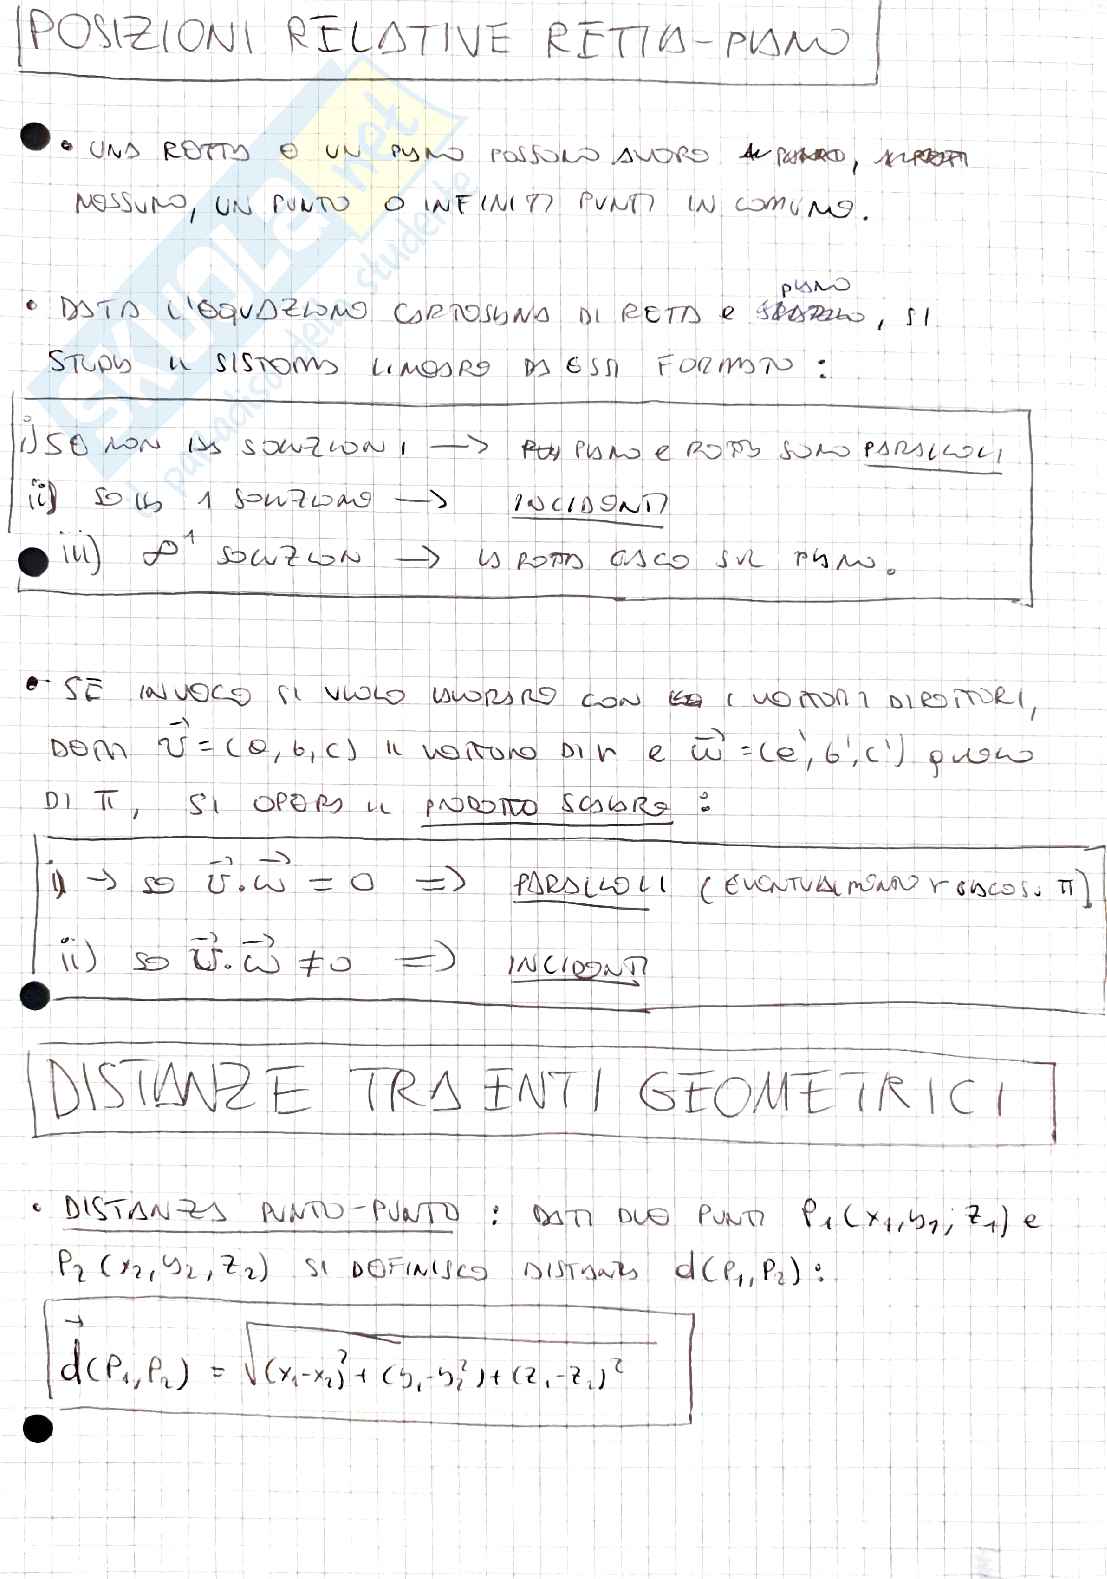 POSIZIONI RELATIVE RETTA-PIANO
• UNA RETTA E UN PIANO POSSONO AVERE
NESSUNO, UN PUNTO O INFINITI PUNTI IN COMUNE.
piano
• DATA L'EQUAZIONE CARTESIANA DI RETTA e SPAZIO, SI
STUDIA IL SISTEMA LINEARE DA ESSI FORMATO:
i) SE NON HA SOLUZIONI → PIANO e RETTA SONO PARALLELI
ii) SE HA 1 SOLUZIONE → INCIDENTI
iii) ∞¹ SOLUZIONI → LA RETTA GIACE SUL PIANO.
• SE INVECE SI VUOLE LAVORARE CON I VETTORI DIRETTORI,
DETTI v⃗ = (a, b, c) IL VETTORE DI r e w⃗ = (a', b', c') quello
DI π, SI OPERA IL PRODOTTO SCALARE:
i) → SE v⃗·w⃗ = 0 => PARALLELI (EVENTUALMENTE r GIACE SU π)
ii) SE v⃗·w⃗ ≠ 0 => INCIDENTI
DISTANZE TRA ENTI GEOMETRICI
• DISTANZA PUNTO-PUNTO: DATI DUE PUNTI P₁(x₁, y₁, z₁) e
P₂(x₂, y₂, z₂) SI DEFINISCE DISTANZA d(P₁, P₂):
d⃗(P₁, P₂) = √(x₁-x₂)² + (y₁-y₂²) + (z₁-z₂)²
SKUOLA.net
il paradiso dello studente